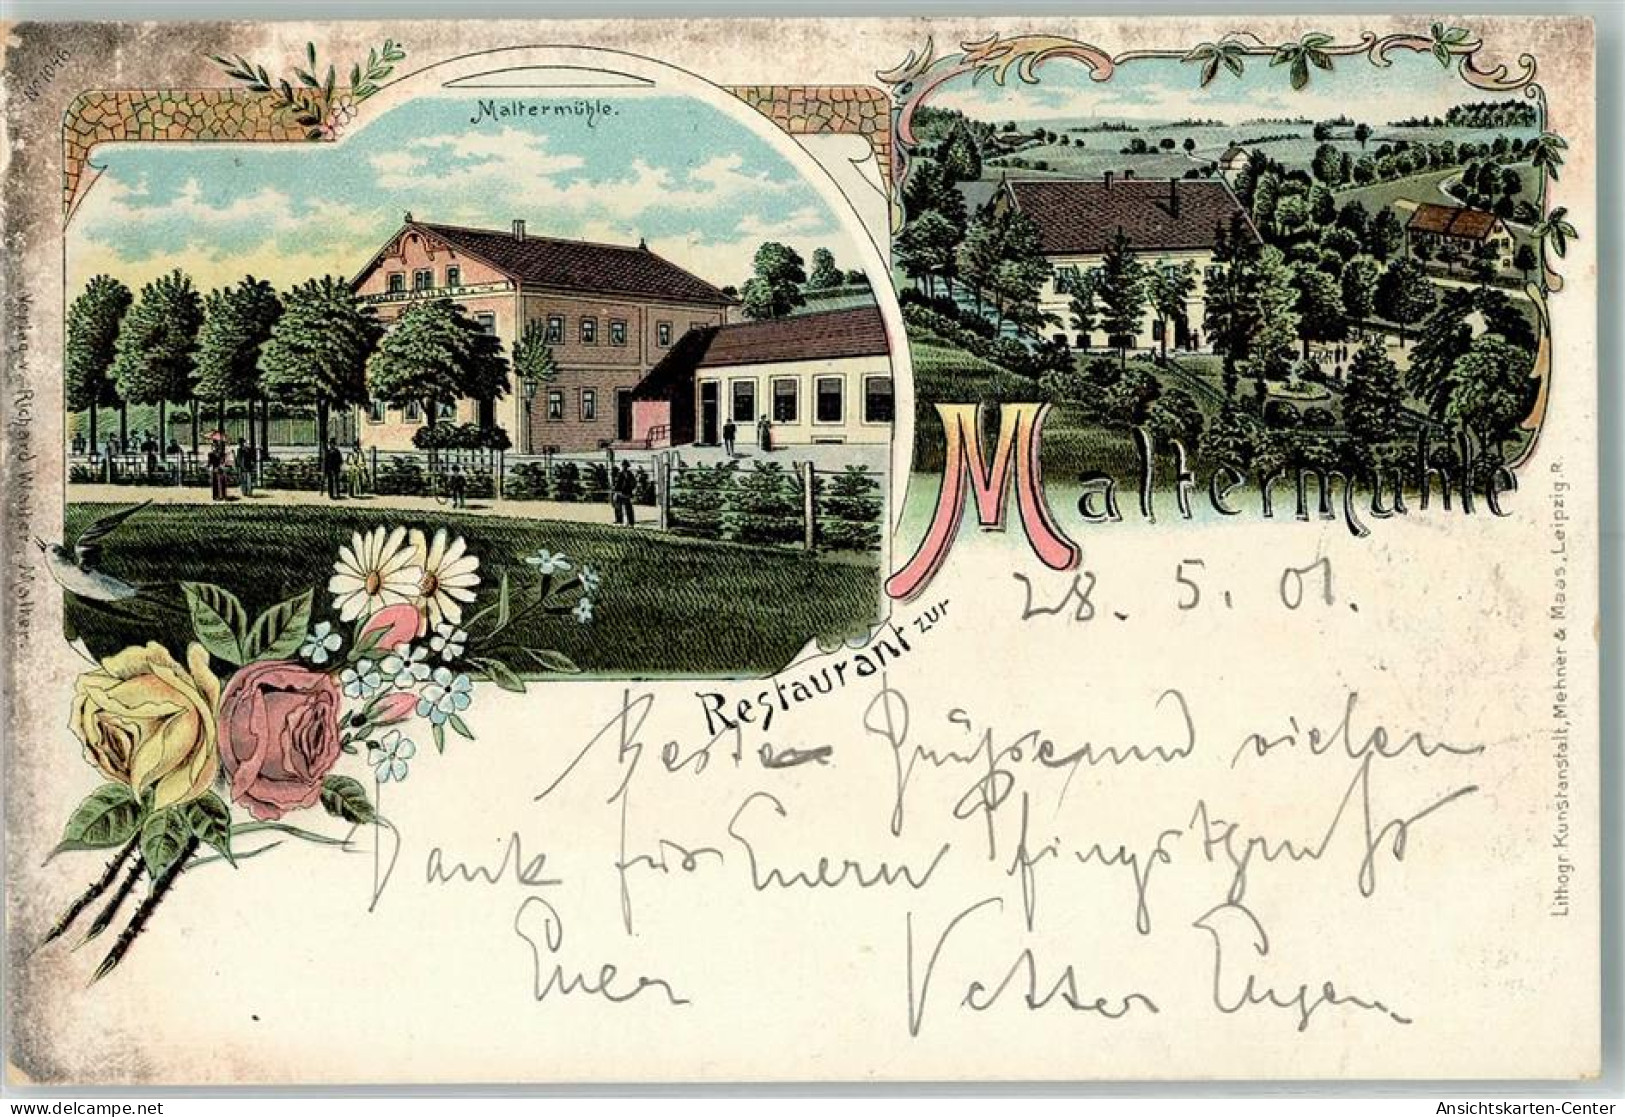 No 1046
Maltermühle.
Restaurant zur
Maltermühle
28. 5. 01.
Beste Grüsse und vielen
Dank für Euern Pfingstgruss
Euer Vetter Eugen.
Verlag v. Richard Walter, Malter.
Lithogr. Kunstanstalt, Mehner & Maas, Leipzig, R.
Ansichtskarten-Center